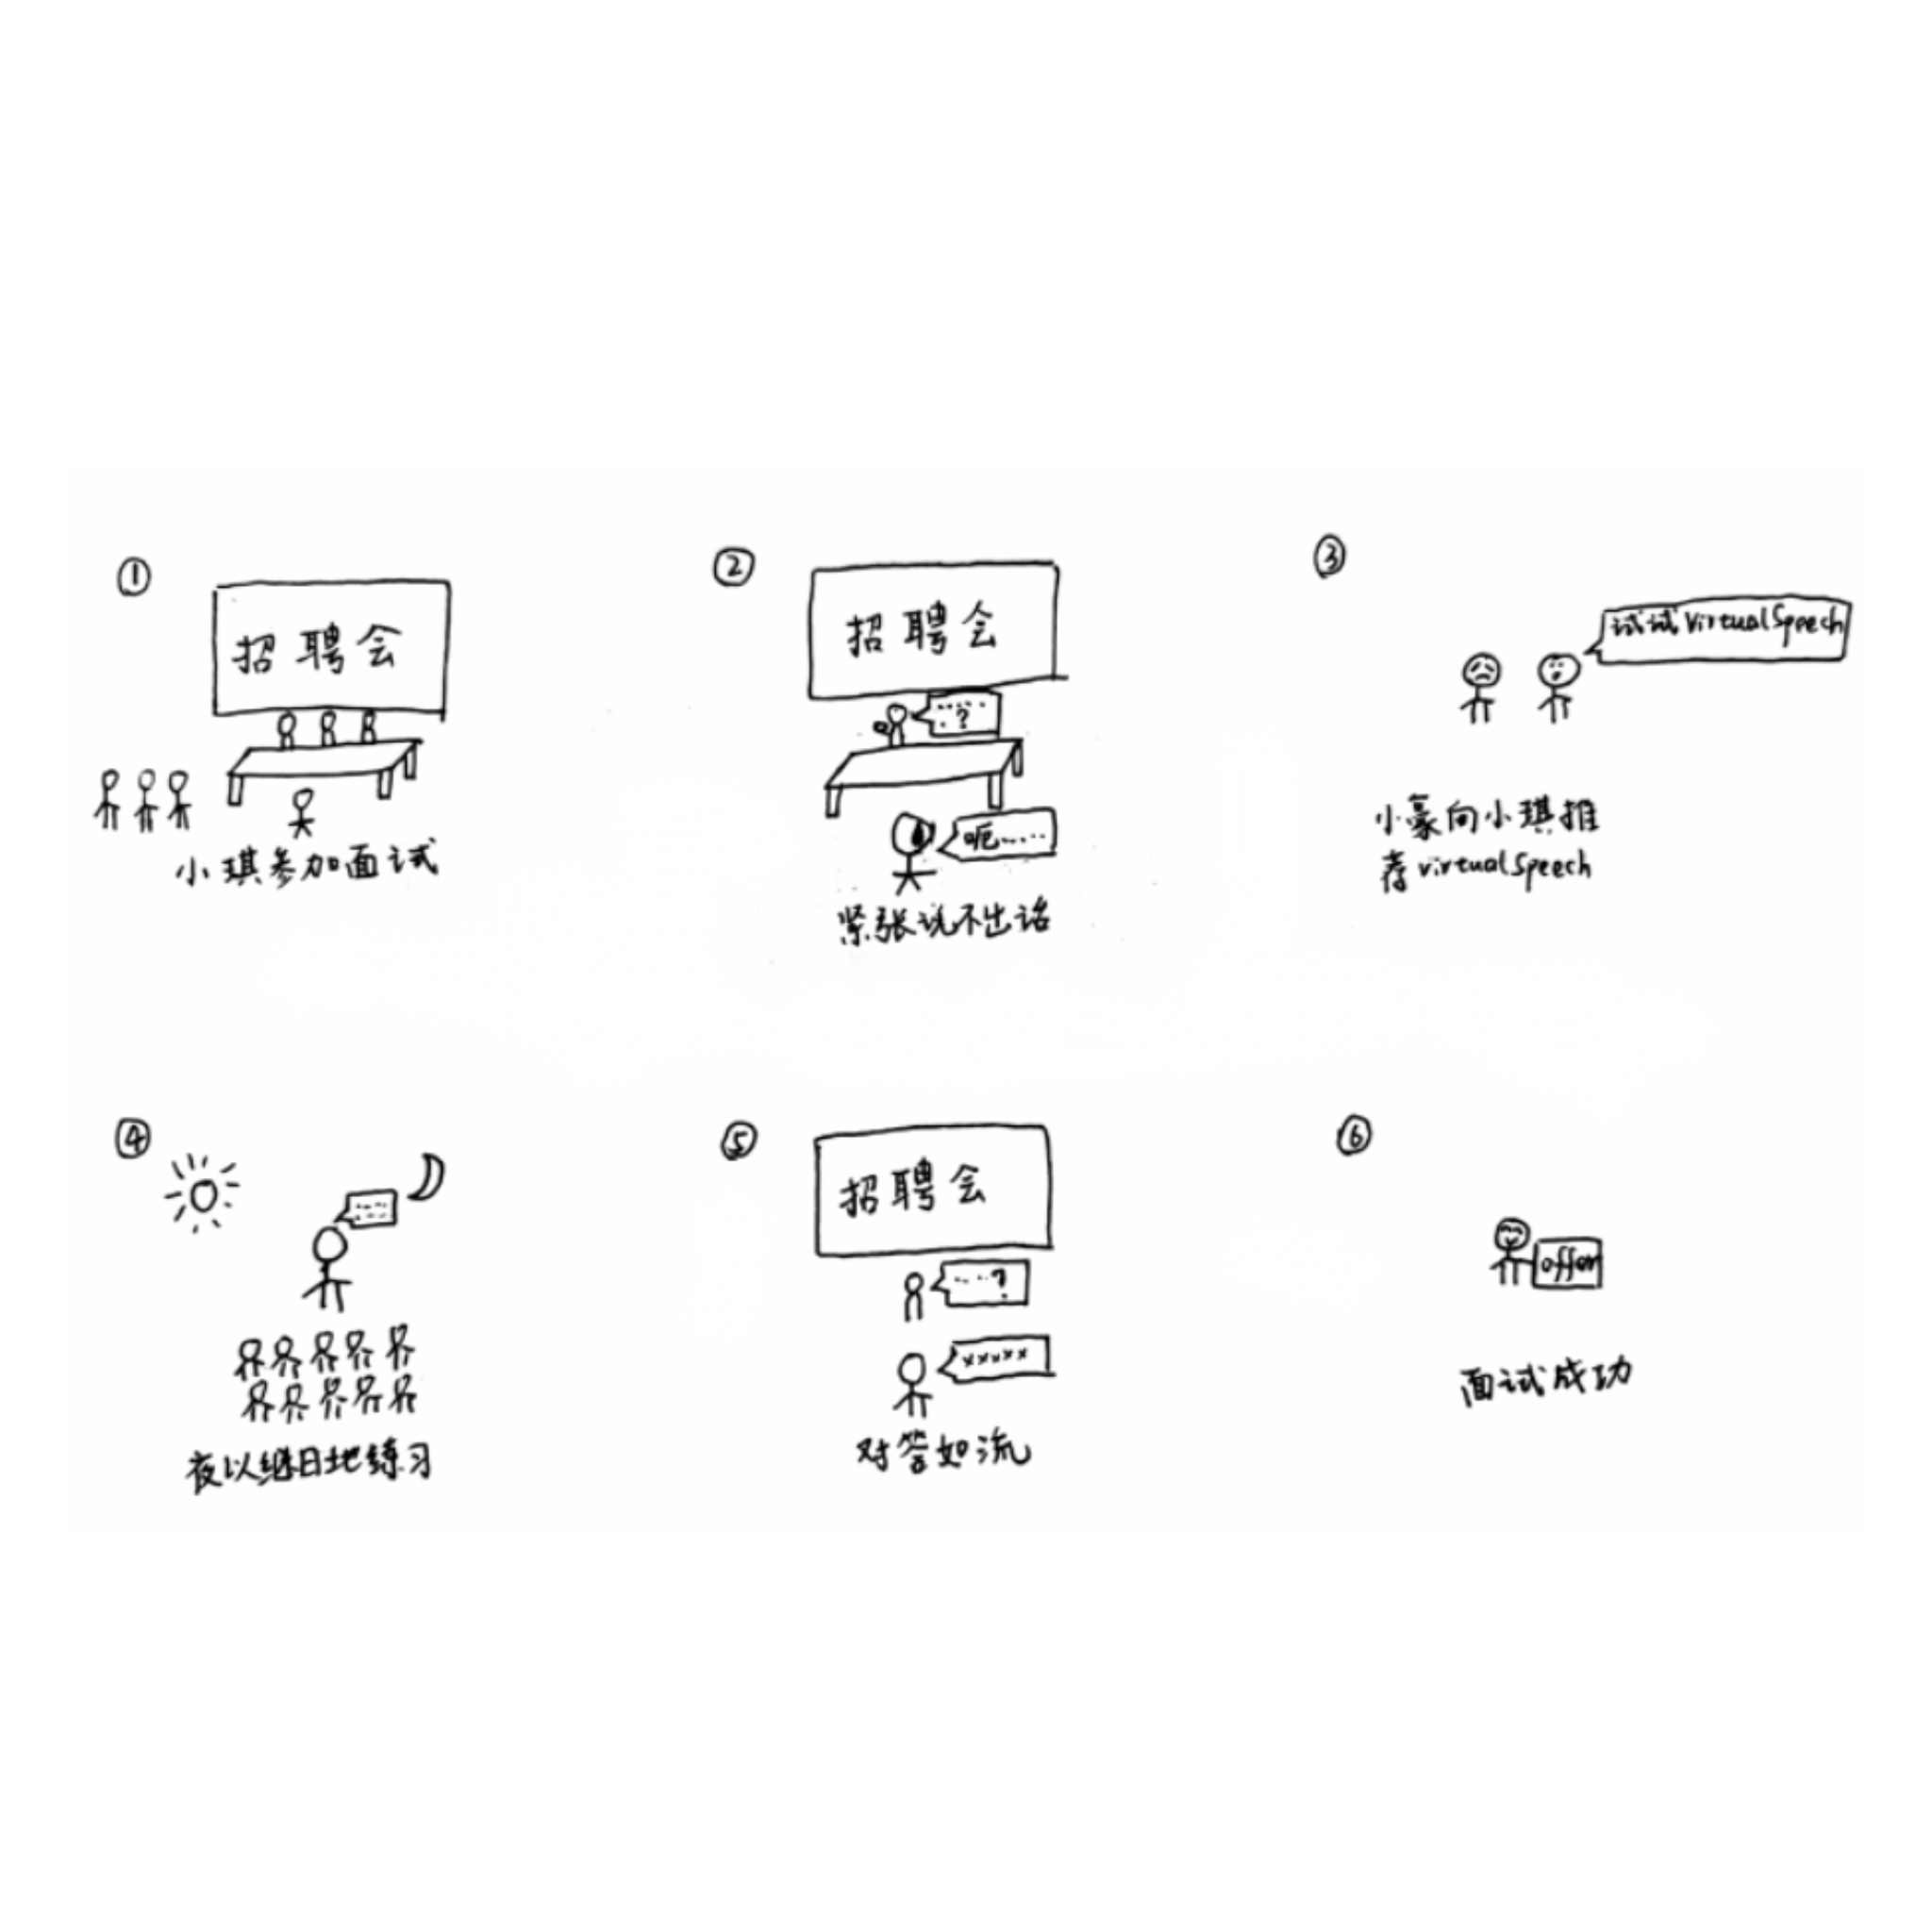 ①
招聘会
小琪参加面试
②
招聘会
……?
呃……
紧张说不出话
③
试试VirtualSpeech
小豪向小琪推
荐virtualSpeech
④
夜以继日地练习
⑤
招聘会
……?
×××××
对答如流
⑥
offer
面试成功